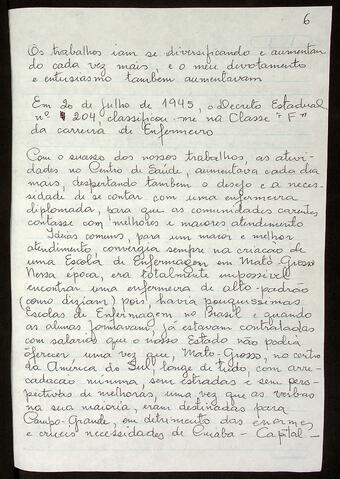 6
Os trabalhos iam se diversificando e aumentan
do cada vez mais, e o meu devotamento
e entusiasmo tambem aumentavam
Em 20 de julho de 1945, o Decreto Estadual
nº 204, classificou-me na Classe "F"
da carreira de Enfermeiro
Com o sucesso dos nossos trabalhos, as ativi-
dades no Centro de Saúde, aumentava cada dia
mais, despertando tambem o desejo e a neces-
sidade de se contar com uma enfermeira
diplomada, para que as comunidades carentes
contasse com melhores e maiores atendimento
Ideias comuns, para um maior e melhor
atendimento, convergia sempre na criacão de
uma Escola de Enfermagem em Mato-Grosso
Nessa época, era totalmente impossivel
encontrar uma enfermeira de alto-padrão
(como diziam) pois, havia pouquissimas
Escolas de Enfermagem no Brasil e quando
as alunas formavam, já estavam contratadas
com salarios que o nosso Estado não podia
oferecer, uma vez que, Mato-Grosso, no centro
da América do Sul, longe de tudo, com arre-
cadacão minima, sem estradas e sem pers-
pectivas de melhoras, uma vez que as verbas
na sua maioria, eram destinadas para
Campo-Grande, em detrimento das enormes
e crueis necessidades de Cuiabá - Capital -